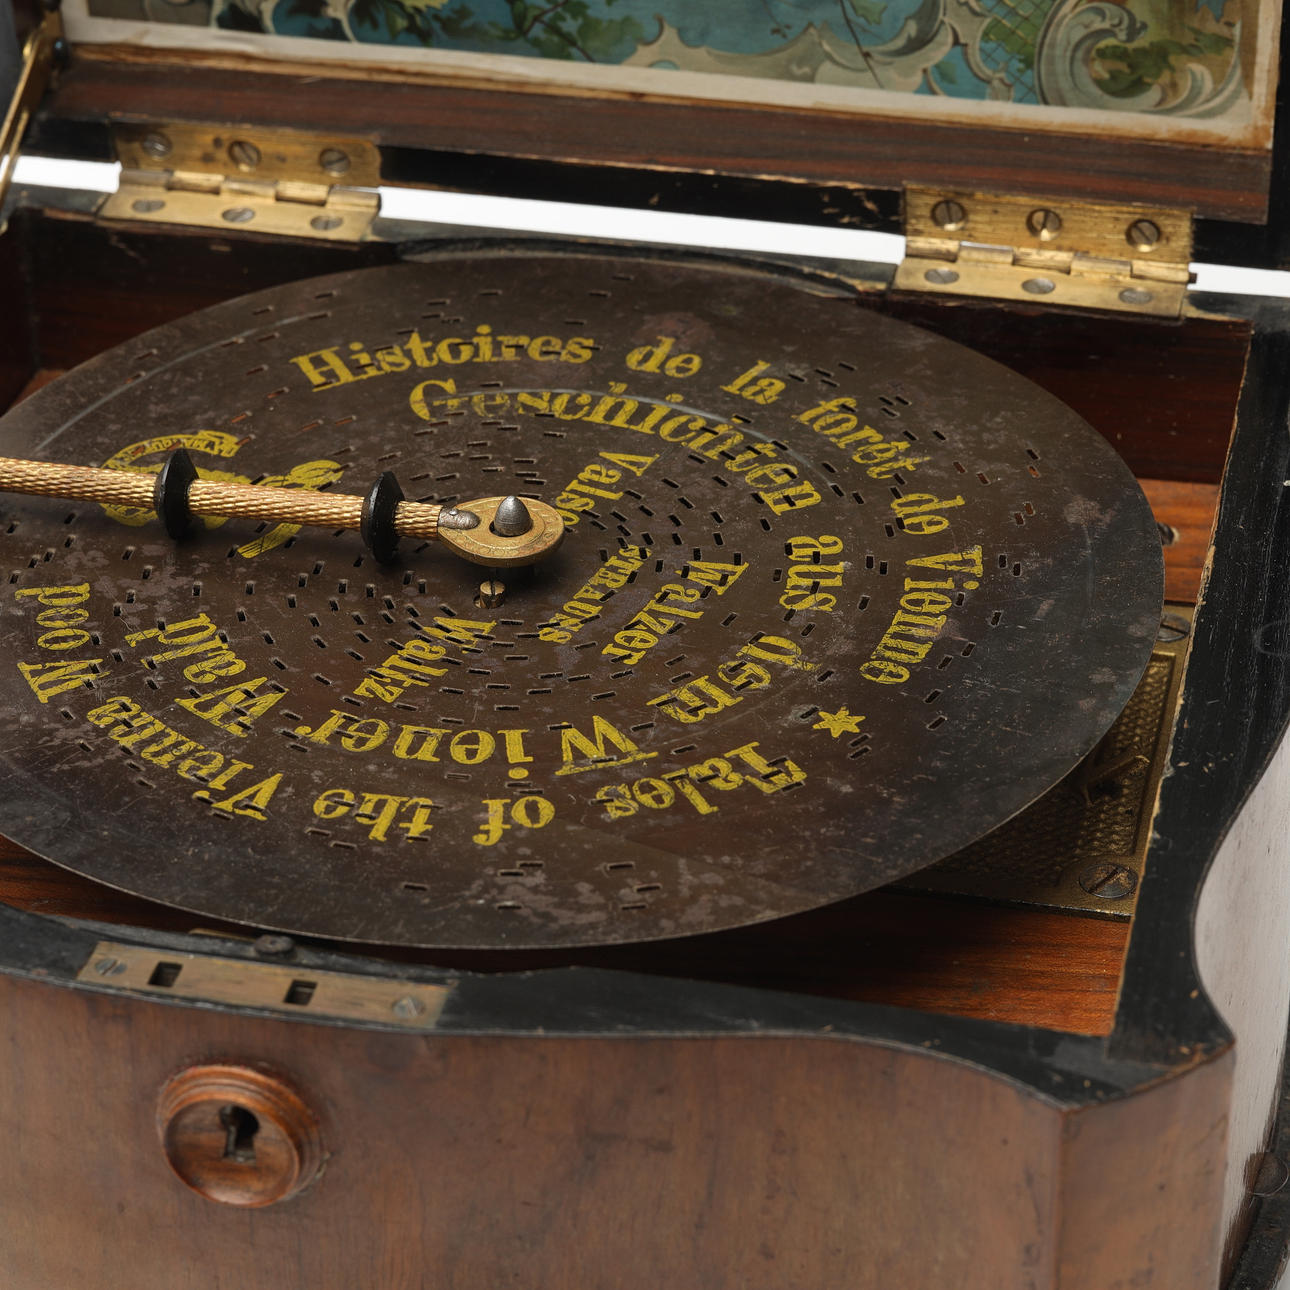 Histoires de la forêt de Vienne
Geschichten aus dem Wiener Wald
Tales of the Vienna Wood
Valse
Walzer
Waltz
STRAUSS